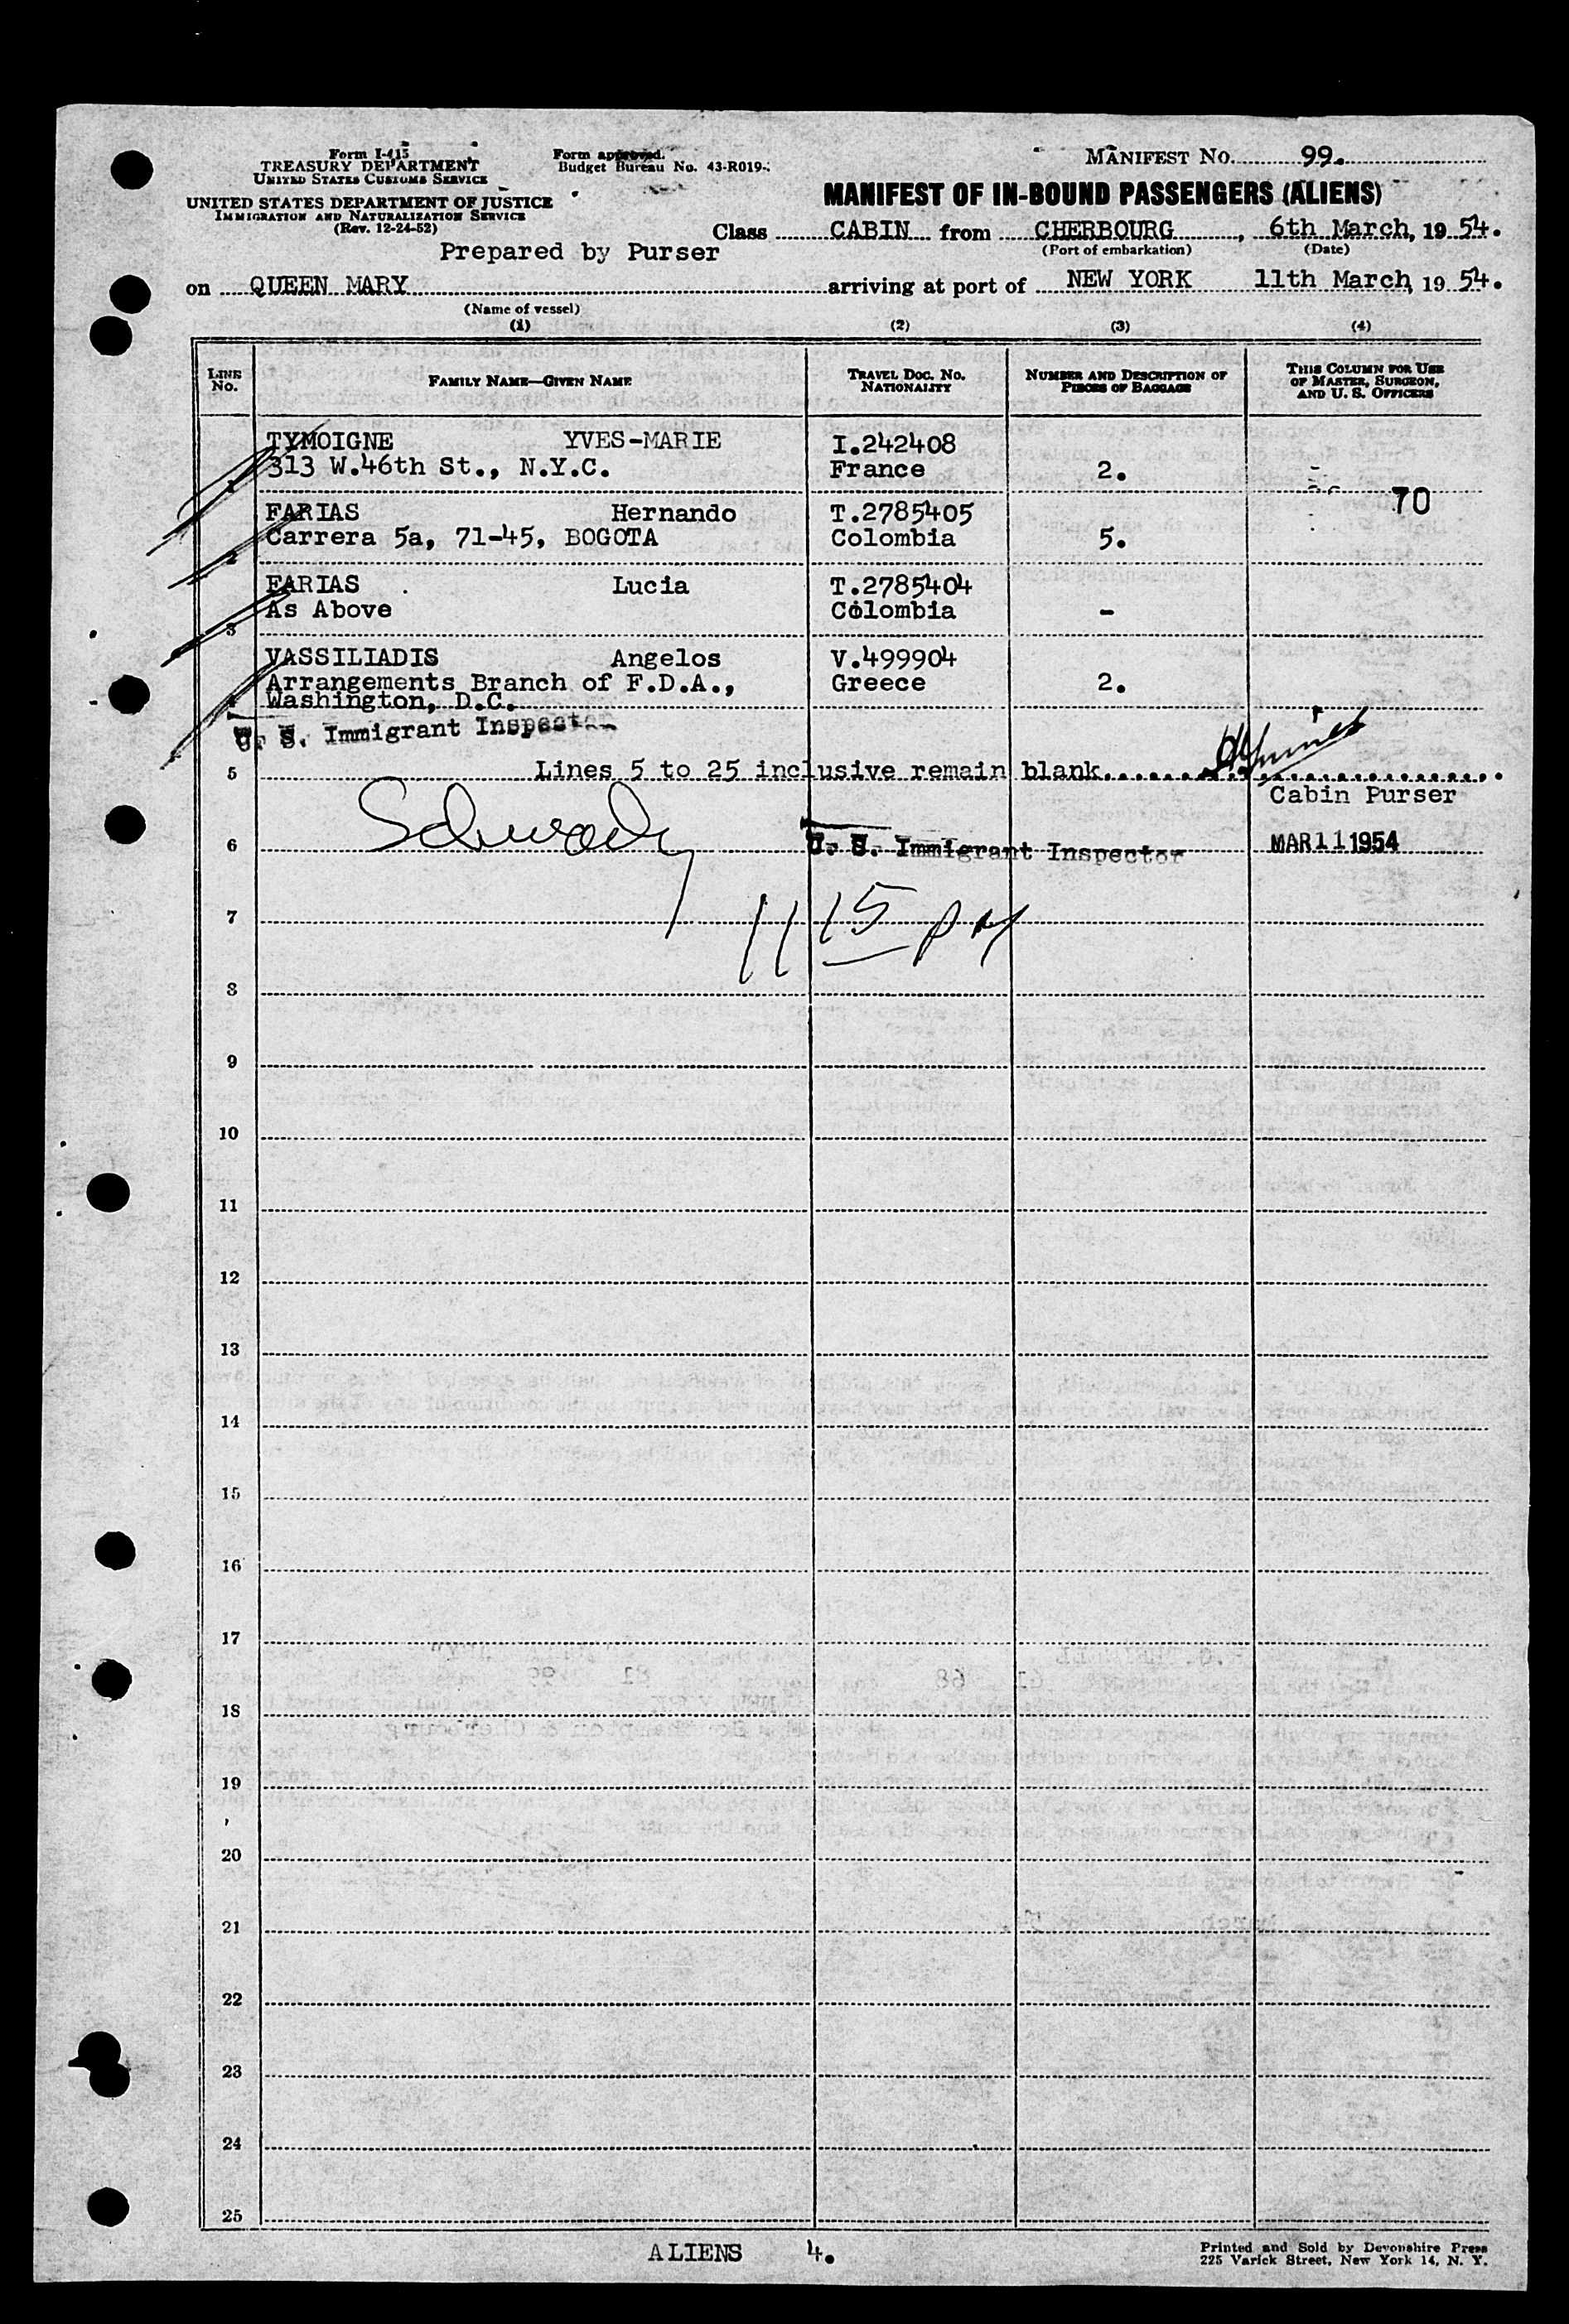 Form I-415
TREASURY DEPARTMENT
UNITED STATES CUSTOMS SERVICE
UNITED STATES DEPARTMENT OF JUSTICE
IMMIGRATION AND NATURALIZATION SERVICE
(Rev. 12-24-52)
Form approved.
Budget Bureau No. 43-R019-
MANIFEST NO. 99.
MANIFEST OF IN-BOUND PASSENGERS (ALIENS)
Class CABIN from CHERBOURG, 6th March, 19 54.
(Port of embarkation) (Date)
Prepared by Purser
on QUEEN MARY arriving at port of NEW YORK 11th March, 19 54.
(Name of vessel)
(1) (2) (3) (4)
LINE NO.
FAMILY NAME—GIVEN NAME
TRAVEL DOC. NO.
NATIONALITY
NUMBER AND DESCRIPTION OF
PIECES OF BAGGAGE
THIS COLUMN FOR USE
OF MASTER, SURGEON,
AND U. S. OFFICERS
TYMOIGNE YVES-MARIE I.242408
313 W.46th St., N.Y.C. France 2.
1
70
FARIAS Hernando T.2785405
Carrera 5a, 71-45, BOGOTA Colombia 5.
2
FARIAS Lucia T.2785404
As Above Colombia -
3
VASSILIADIS Angelos V.499904
Arrangements Branch of F.D.A., Greece 2.
4 Washington, D.C.
U. S. Immigrant Inspector
5 Lines 5 to 25 inclusive remain blank
Cabin Purser
6 U. S. Immigrant Inspector MAR 11 1954
7 11 15 PM
8
9
10
11
12
13
14
15
16
17
18
19
20
21
22
23
24
25
ALIENS 4.
Printed and Sold by Devonshire Press
225 Varick Street, New York 14, N. Y.